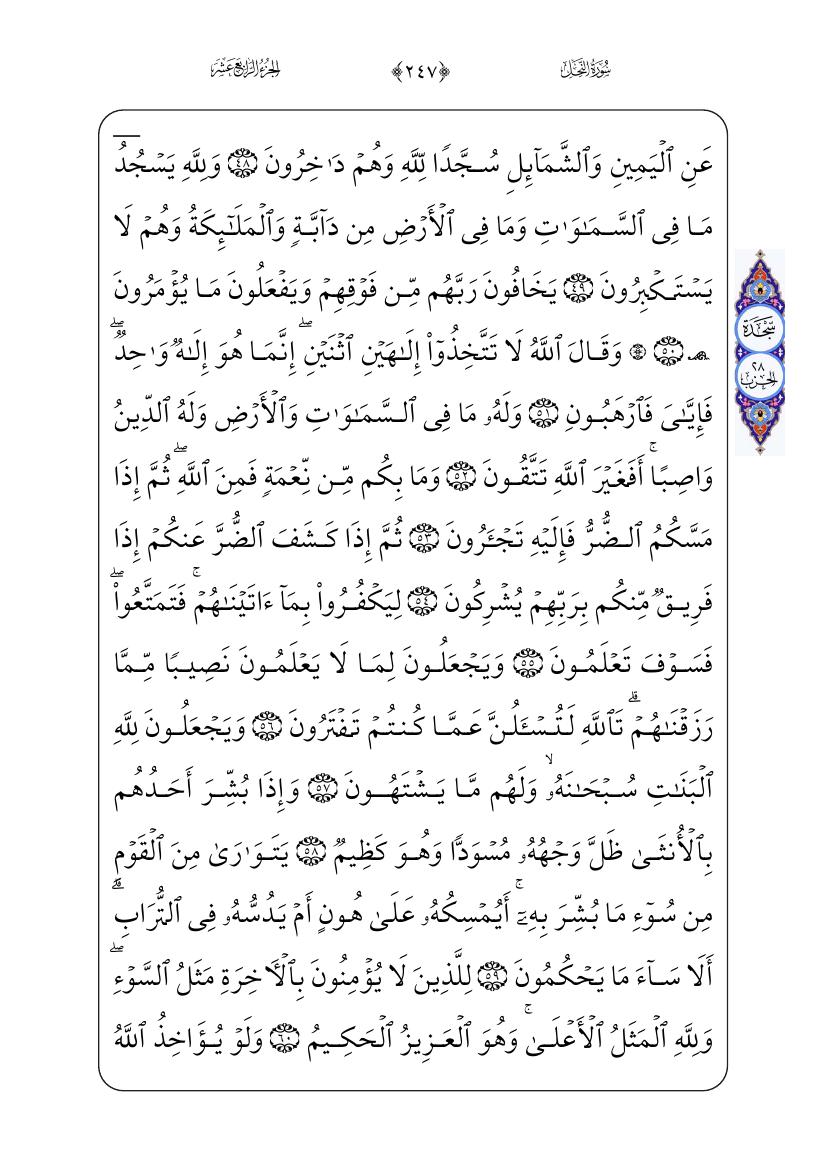 سُورَةُ النَّحْلِ
﴿٢٤٧﴾
الجُزْءُ الرَّابِعَ عَشَرَ
عَنِ ٱلۡيَمِينِ وَٱلشَّمَآئِلِ سُجَّدٗا لِّلَّهِ وَهُمۡ دَٰخِرُونَ ٤٨ وَلِلَّهِۤ يَسۡجُدُۤ
مَا فِي ٱلسَّمَٰوَٰتِ وَمَا فِي ٱلۡأَرۡضِ مِن دَآبَّةٖ وَٱلۡمَلَٰٓئِكَةُ وَهُمۡ لَا
يَسۡتَكۡبِرُونَ ٤٩ يَخَافُونَ رَبَّهُم مِّن فَوۡقِهِمۡ وَيَفۡعَلُونَ مَا يُؤۡمَرُونَ
۩ ٥٠ ۞ وَقَالَ ٱللَّهُ لَا تَتَّخِذُوٓاْ إِلَٰهَيۡنِ ٱثۡنَيۡنِۖ إِنَّمَا هُوَ إِلَٰهٞ وَٰحِدٞۖ
فَإِيَّٰيَ فَٱرۡهَبُونِ ٥١ وَلَهُۥ مَا فِي ٱلسَّمَٰوَٰتِ وَٱلۡأَرۡضِ وَلَهُ ٱلدِّينُ
وَاصِبًاۚ أَفَغَيۡرَ ٱللَّهِ تَتَّقُونَ ٥٢ وَمَا بِكُم مِّن نِّعۡمَةٖ فَمِنَ ٱللَّهِۖ ثُمَّ إِذَا
مَسَّكُمُ ٱلضُّرُّ فَإِلَيۡهِ تَجۡـَٔرُونَ ٥٣ ثُمَّ إِذَا كَشَفَ ٱلضُّرَّ عَنكُمۡ إِذَا
فَرِيقٞ مِّنكُم بِرَبِّهِمۡ يُشۡرِكُونَ ٥٤ لِيَكۡفُرُواْ بِمَآ ءَاتَيۡنَٰهُمۡۚ فَتَمَتَّعُواْۖ
فَسَوۡفَ تَعۡلَمُونَ ٥٥ وَيَجۡعَلُونَ لِمَا لَا يَعۡلَمُونَ نَصِيبٗا مِّمَّا
رَزَقۡنَٰهُمۡۗ تَٱللَّهِ لَتُسۡـَٔلُنَّ عَمَّا كُنتُمۡ تَفۡتَرُونَ ٥٦ وَيَجۡعَلُونَ لِلَّهِ
ٱلۡبَنَٰتِ سُبۡحَٰنَهُۥۙ وَلَهُم مَّا يَشۡتَهُونَ ٥٧ وَإِذَا بُشِّرَ أَحَدُهُم
بِٱلۡأُنثَىٰ ظَلَّ وَجۡهُهُۥ مُسۡوَدّٗا وَهُوَ كَظِيمٞ ٥٨ يَتَوَٰرَىٰ مِنَ ٱلۡقَوۡمِ
مِن سُوٓءِ مَا بُشِّرَ بِهِۦٓۚ أَيُمۡسِكُهُۥ عَلَىٰ هُونٍ أَمۡ يَدُسُّهُۥ فِي ٱلتُّرَابِۗ
أَلَا سَآءَ مَا يَحۡكُمُونَ ٥٩ لِلَّذِينَ لَا يُؤۡمِنُونَ بِٱلۡأٓخِرَةِ مَثَلُ ٱلسَّوۡءِۖ
وَلِلَّهِ ٱلۡمَثَلُ ٱلۡأَعۡلَىٰۚ وَهُوَ ٱلۡعَزِيزُ ٱلۡحَكِيمُ ٦٠ وَلَوۡ يُؤَاخِذُ ٱللَّهُ
سَجْدَة
٢٨
الحِزْب